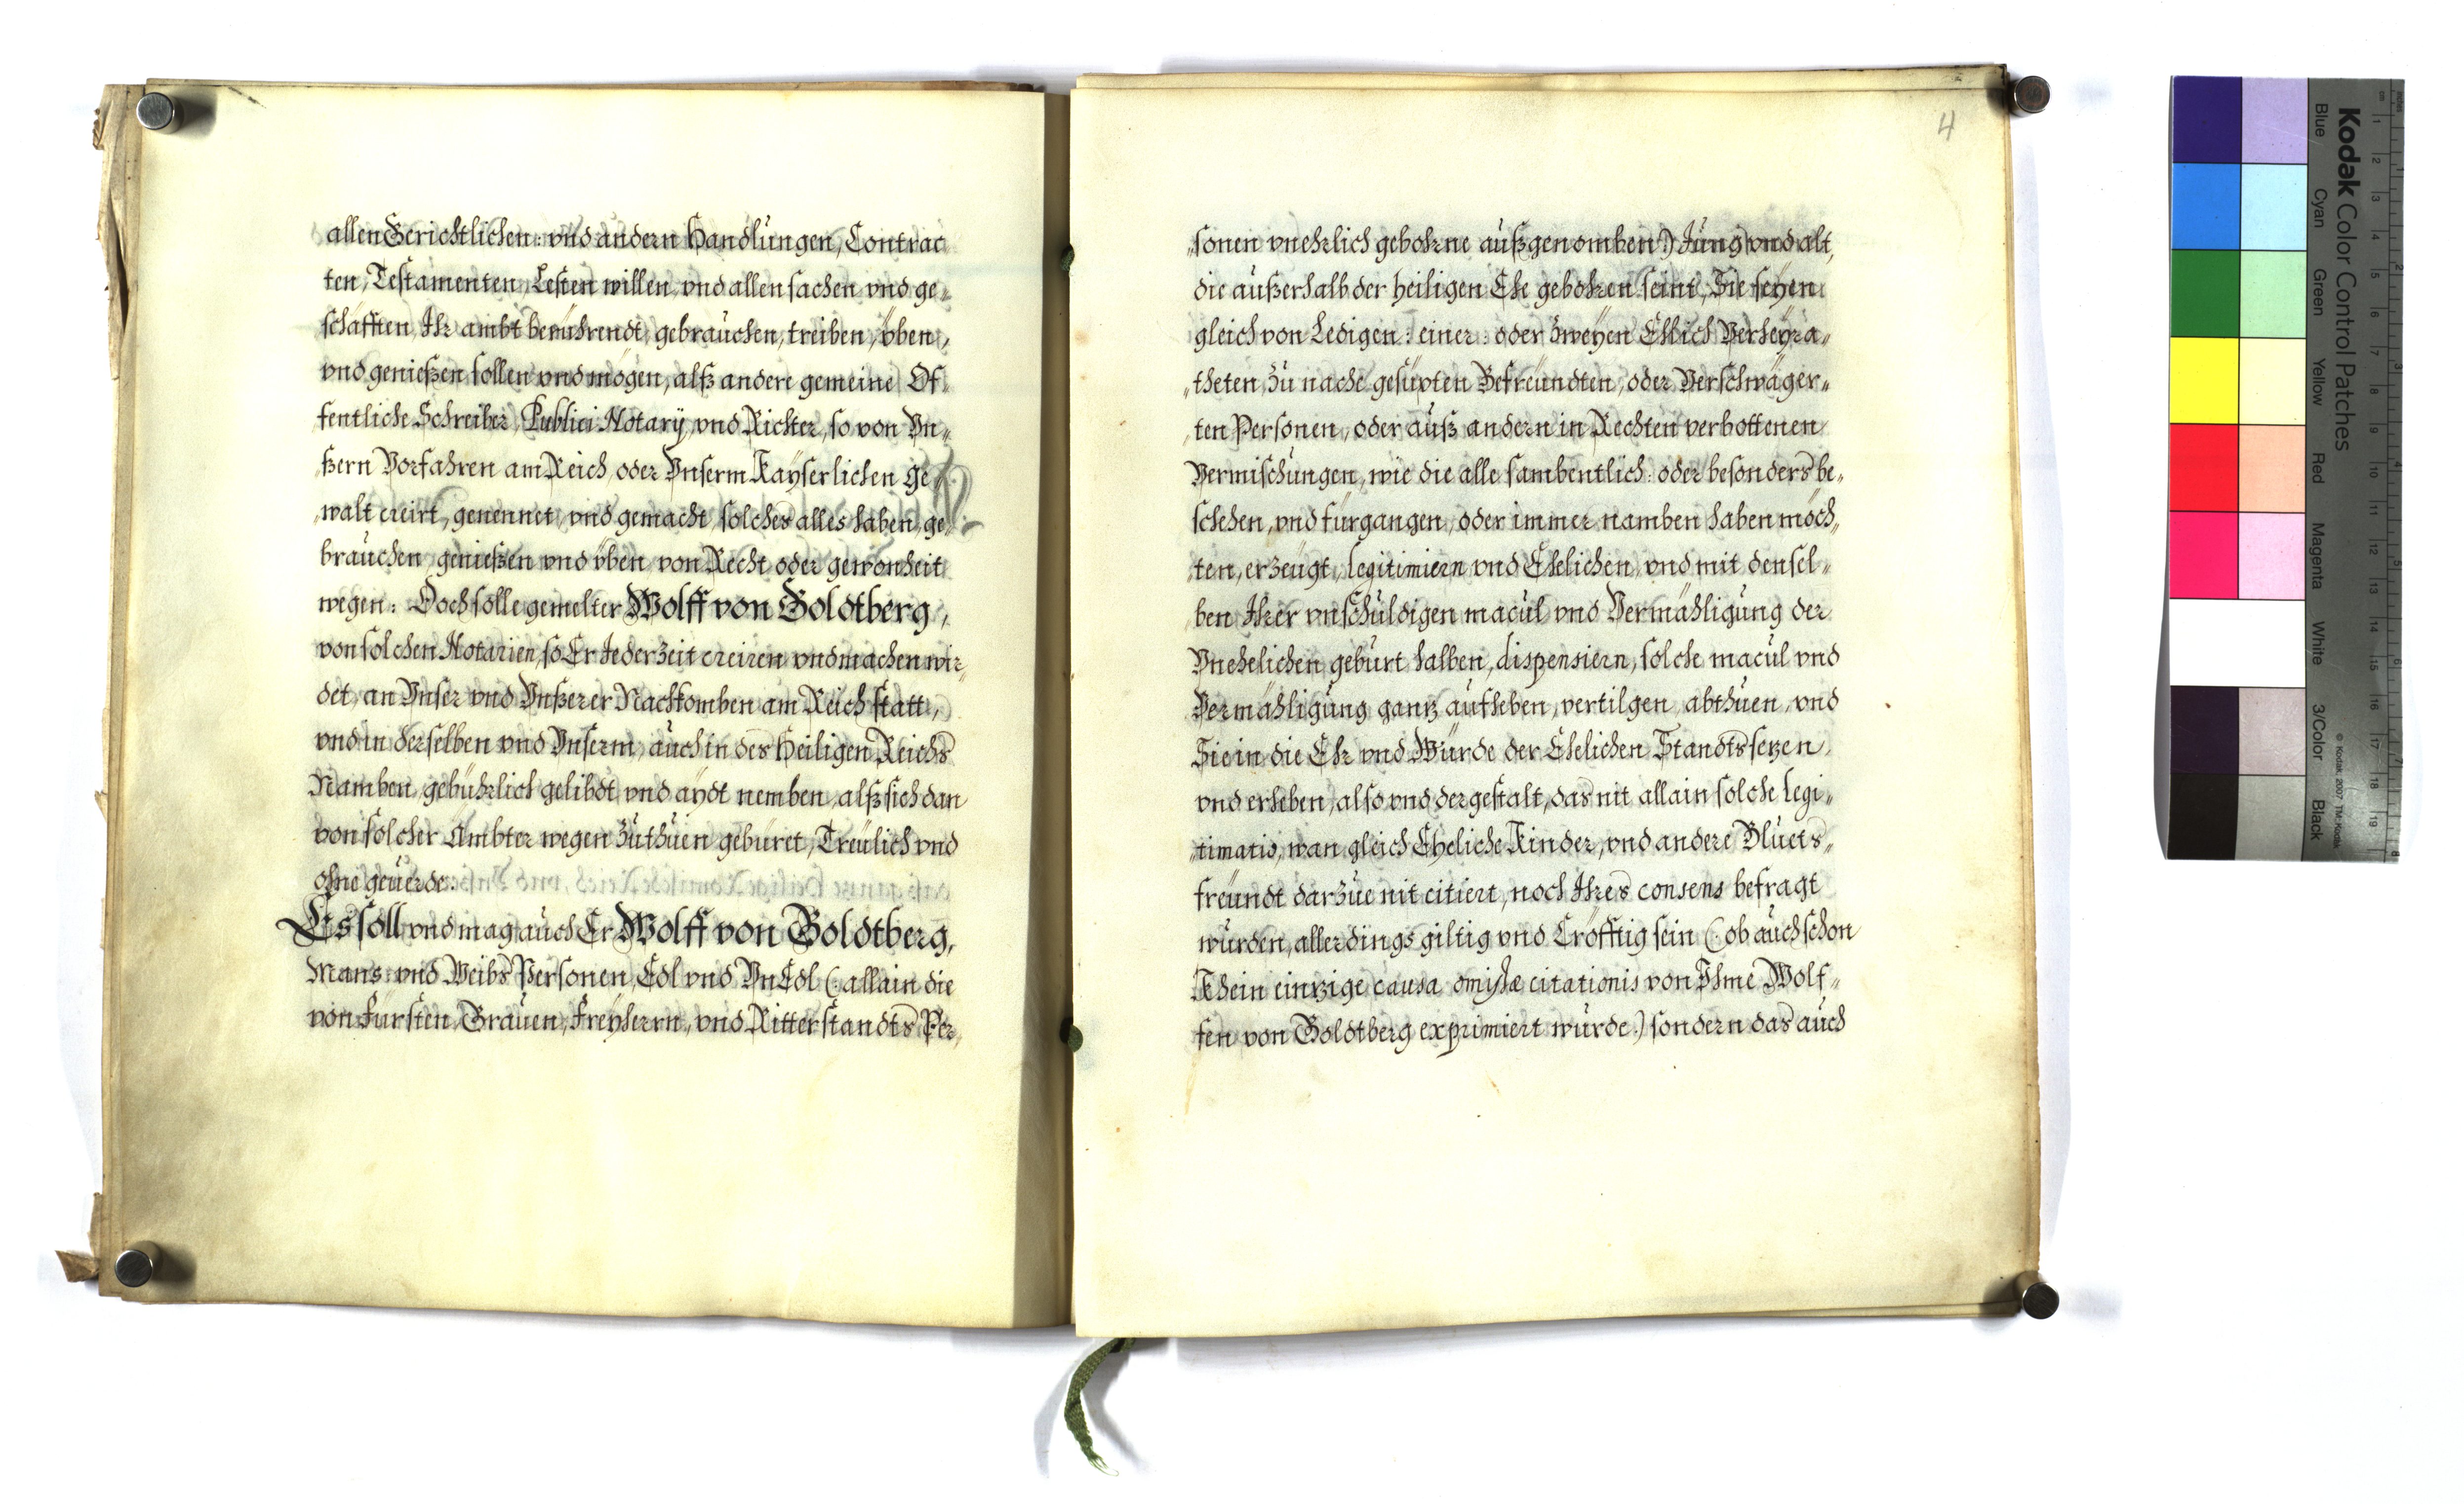 allen Gerichtlichen: vnd andern Handlungen, Contrac
ten, Testamenten, Lesten willen, vnd allen sachen vnd ge„
schäfften, Ihr ambt berührendt, gebrauchen, treiben, üben,
vnd genießen sollen vnd mögen, alß andere gemeine Of„
fentliche Schreiber, Publici Notarÿ, vnd Richter, so von Vn„
ßern Vorfahren am Reich, oder Vnserm Kaÿserlichen ge„
„walt creirt, genennet, vnd gemacht, solches alles haben, ge„
brauchen, genießen vnd üben, von Recht oder gewonheit
wegen: Doch solle gemelter Wolff von Goldtberg,
von solchen Notarien, so Er Jederzeit creiren vnd machen wir„
det, an Vnser vnd Vnßerer Nachkomben am Reich statt,
vnd in derselben vnd Vnserm, auch in des Heiligen Reichs
Namben, gebührlich gelibdt, vnd aÿdt nemben, alß sich dan
von solcher Ambter wegen zuthuen gebüret, Treulich vnd
ohne geuerde.
Es soll vnd mag auch Er Wolff von Goldtberg,
Mans: vnd Weibs Personen, Edl vnd VnEdl (: allain die
von Fürsten, Grauen, Freÿherrn, vnd Ritterstandts Per„
4
„sonen vnehrlich gebohrne außgenomben:) Jung vnd alt,
die außerhalb der heiligen Ehe gebohren seint, Sie seÿen
gleich von Ledigen: einer: oder zweÿen Ehlich Verheÿra„
„theten, zu nache gesüpten Befreundten, oder Verschwäger„
„ten Personen, oder auß andern in Rechten verbottenen
Vermischungen, wie die alle sambentlich: oder besonders be„
schehen, vnd fürgangen, oder immer namben haben möch„
„ten, erzeugt, legitimiern vnd Ehelichen, vnd mit densel„
ben Ihrer vnschuldigen macul vnd Vermähligung der
Vnehelichen geburt halben, dispensiern, solche macul vnd
Vermähligung ganz aufheben, vertilgen, abthuen, vnd
Sie in die Ehr vnd Würde der Ehelichen Standts sezen,
vnd erheben, also vnd dergestalt, das nit allain solche Legi„
„timatio, wan gleich Eheliche Kinder, vnd andere Bluets„
freundt darzue nit citiert, noch Ihres consens befragt
würden, allerdings giltig vnd Cröfftig sein (: ob auch schon
Khein einzige causa omissæ citationis von Ihme Wolf„
fen von Goldtberg exprimiert würde:) sondern das auch
Kodak Color Control Patches
Blue Cyan Green Yellow Red Magenta White 3/Color Black
© Kodak, 2007 TM: Kodak